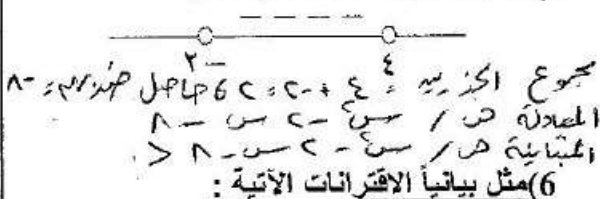 -٢ ٤
مجموع الجذرين = ٤ + -٢ = ٢ ، حاصل ضربهم = -٨
المعادلة هي / س٢ - ٢ س - ٨
المتباينة هي / س٢ - ٢ س - ٨ <
6)مثل بيانياً الاقترانات الآتية :